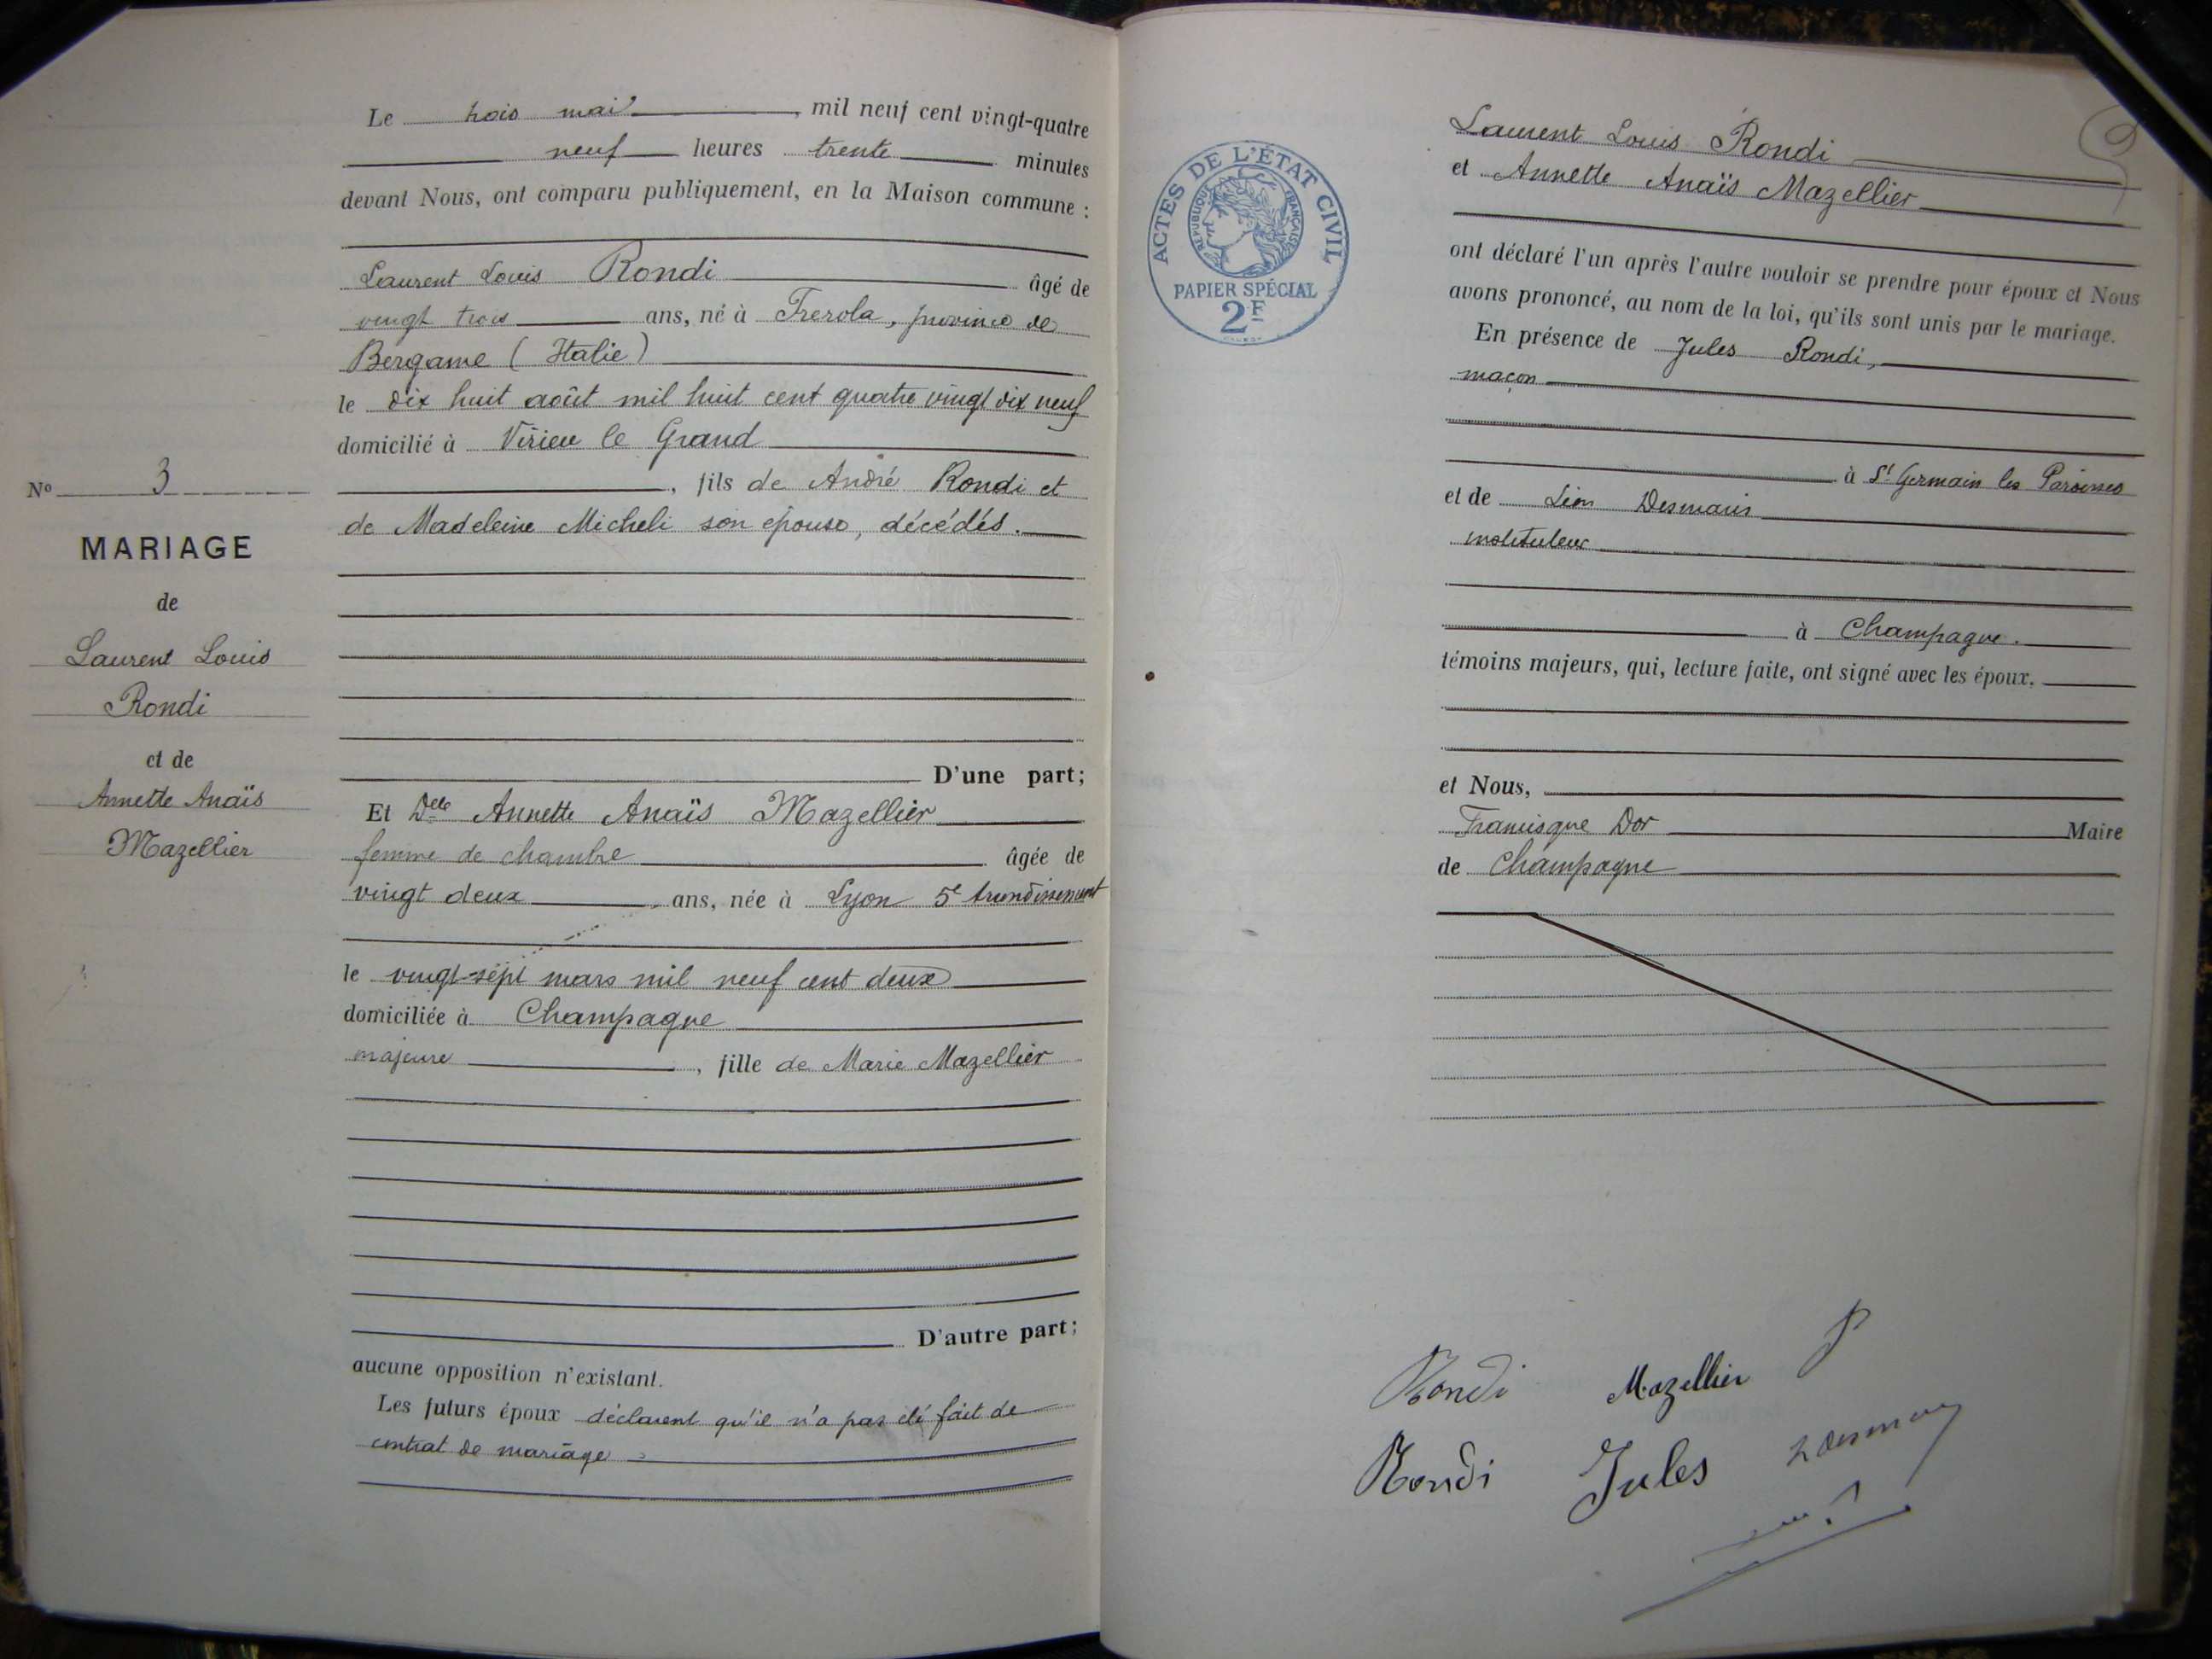 Le trois mai, mil neuf cent vingt-quatre
neuf heures trente minutes
devant Nous, ont comparu publiquement, en la Maison commune :
Laurent Louis Rondi âgé de
vingt trois ans, né à Frerola, province de
Bergame (Italie)
le dix huit août mil huit cent quatre vingt dix neuf
domicilié à Virieu le Grand
, fils de André Rondi et
de Madeleine Micheli son épouse, décédés.
D'une part;
Et Delle Annette Anaïs Mazellier
femme de chambre âgée de
vingt deux ans, née à Lyon 5e Arrondissement
le vingt-sept mars mil neuf cent deux
domiciliée à Champagne
majeure, fille de Marie Mazellier
D'autre part;
aucune opposition n'existant.
Les futurs époux déclarent qu'il n'a pas été fait de
contrat de mariage
No 3
MARIAGE
de
Laurent Louis
Rondi
et de
Annette Anaïs
Mazellier
ACTES DE L'ÉTAT CIVIL
RÉPUBLIQUE FRANÇAISE
PAPIER SPÉCIAL
2F
Laurent Louis Rondi
et Annette Anaïs Mazellier
ont déclaré l'un après l'autre vouloir se prendre pour époux et Nous
avons prononcé, au nom de la loi, qu'ils sont unis par le mariage.
En présence de Jules Rondi,
maçon
à St Germain les Paroisses
et de Léon Desmaris
instituteur
à Champagne.
témoins majeurs, qui, lecture faite, ont signé avec les époux.
et Nous,
Francisque Dor Maire
de Champagne
Rondi Mazellier
Rondi Jules